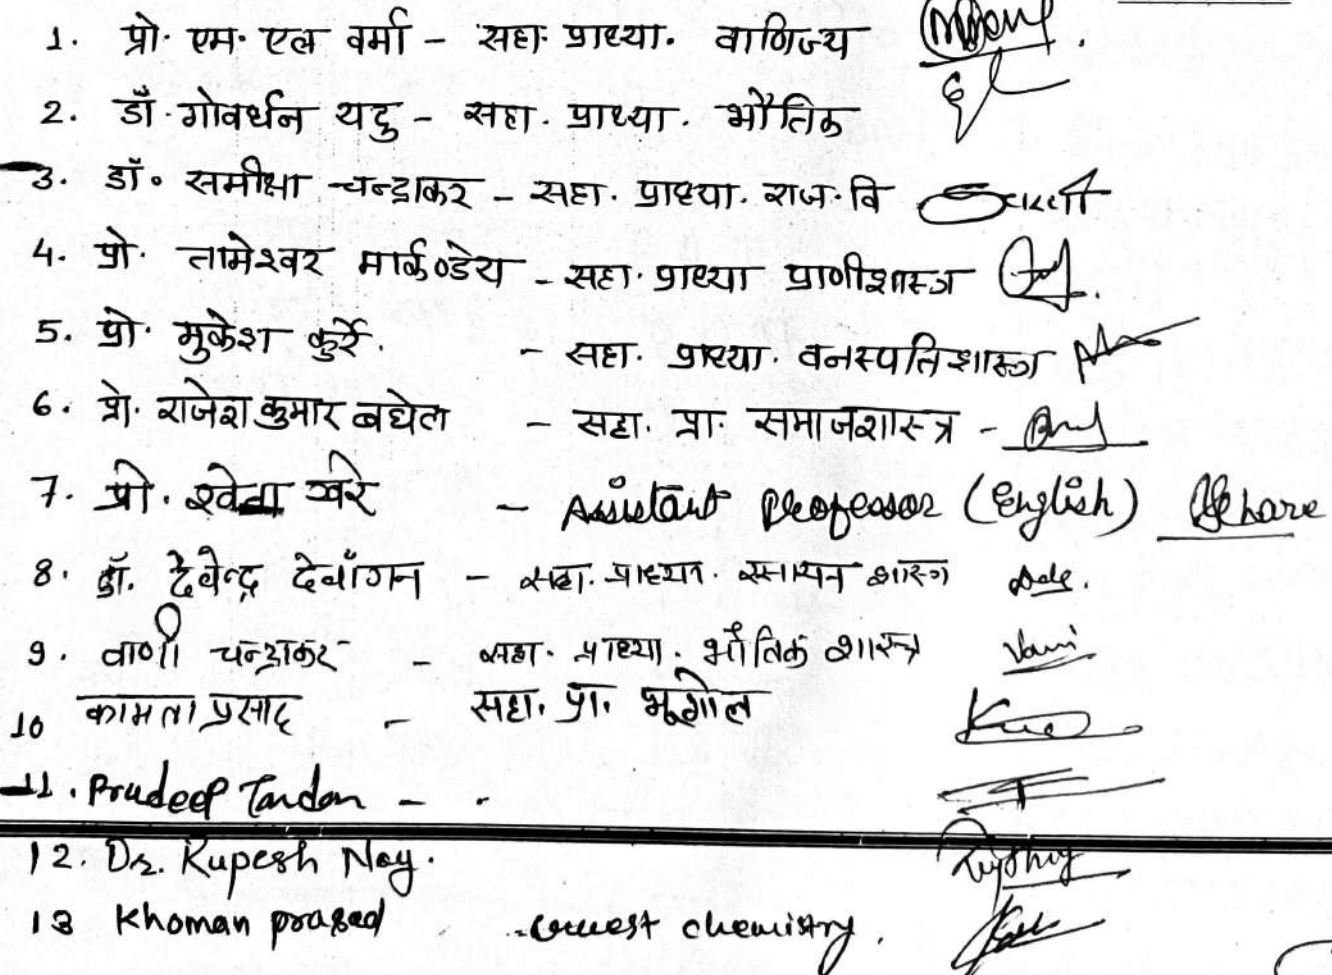 1. प्रो. एम. एल वर्मा - सहा. प्राध्या. वाणिज्य
2. डॉ. गोवर्धन यदु - सहा. प्राध्या. भौतिक
3. डॉ. समीक्षा चन्द्राकर - सहा. प्राध्या. राज.वि
4. प्रो. तामेश्वर मार्कण्डेय - सहा. प्राध्या प्राणीशास्त्र
5. प्रो. मुकेश कुर्रे. - सहा. प्राध्या. वनस्पतिशास्त्र
6. प्रो. राजेश कुमार बघेल - सहा. प्रा. समाजशास्त्र -
7. प्रो. श्वेता खरे - Assistant Professor (English) Khare
8. डॉ. देवेन्द्र देवाँगन - सहा. प्राध्या. रसायन शास्त्र
9. वाणी चन्द्राकर - सहा. प्राध्या. भौतिक शास्त्र Vani
10 कामता प्रसाद - सहा. प्रा. भूगोल
11. Pradeep Tandan - .
12. Dr. Rupesh Nay.
13 Khoman prasad - Guest chemistry.